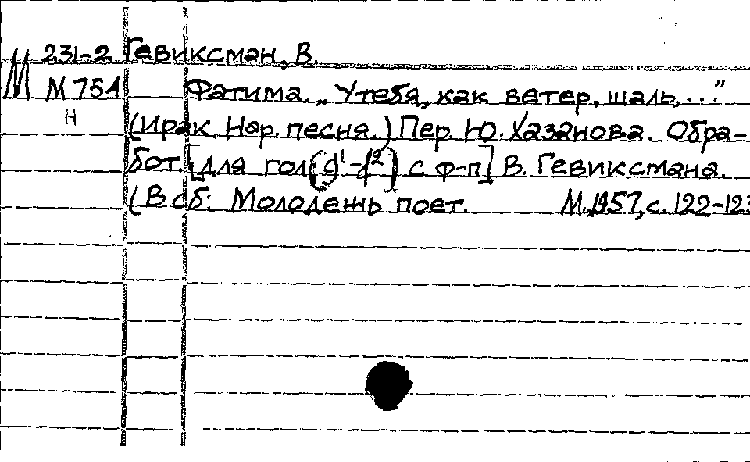 М 231-2 Гевиксман, В.
М 754 Фатима. „У тебя, как ветер, шаль,..."
Н (Ирак. Нар. песня.) Пер. Ю. Хазанова. Обра-
бот. [для гол (g¹-f²) с ф-п] В. Гевиксмана.
(В сб: Молодежь поет. М., 1957, с. 122-123